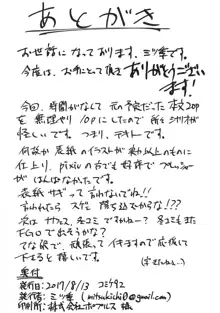 あとがき
お世話になっております、ミツ季です。
今度は、お手にとって頂き ありがとうござい
ます!
今回、時間がなくて 元の予定だった本文20p
を 無理やり 10pにしたので 所々シナリオが
怪しいです。つまり、テキトーです。
何故か 表紙のイラストが 思った以上のものに
仕上り、pixivの方でも好評で プレッシャーが
はんぱなかったです。
表紙サギって 言われないでね!!
言われたら スゲェ 落ち込みますからな!?
次は サカス、冬コミですかねー? 冬コミもまた
FGOで 出そうかな?
てな訳で、頑張って イキますので 応援して
下さると 嬉しいです。
奥付
発行日:2017/8/13 コミケ92
発行者:ミツ季 (mitsukichi@gmail.com)
印刷所:株式会社ポプルス 様